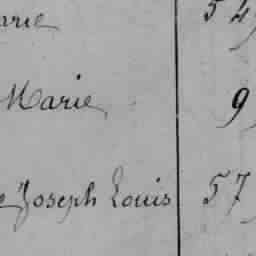 arie 54
Marie 9
e Joseph Louis 57